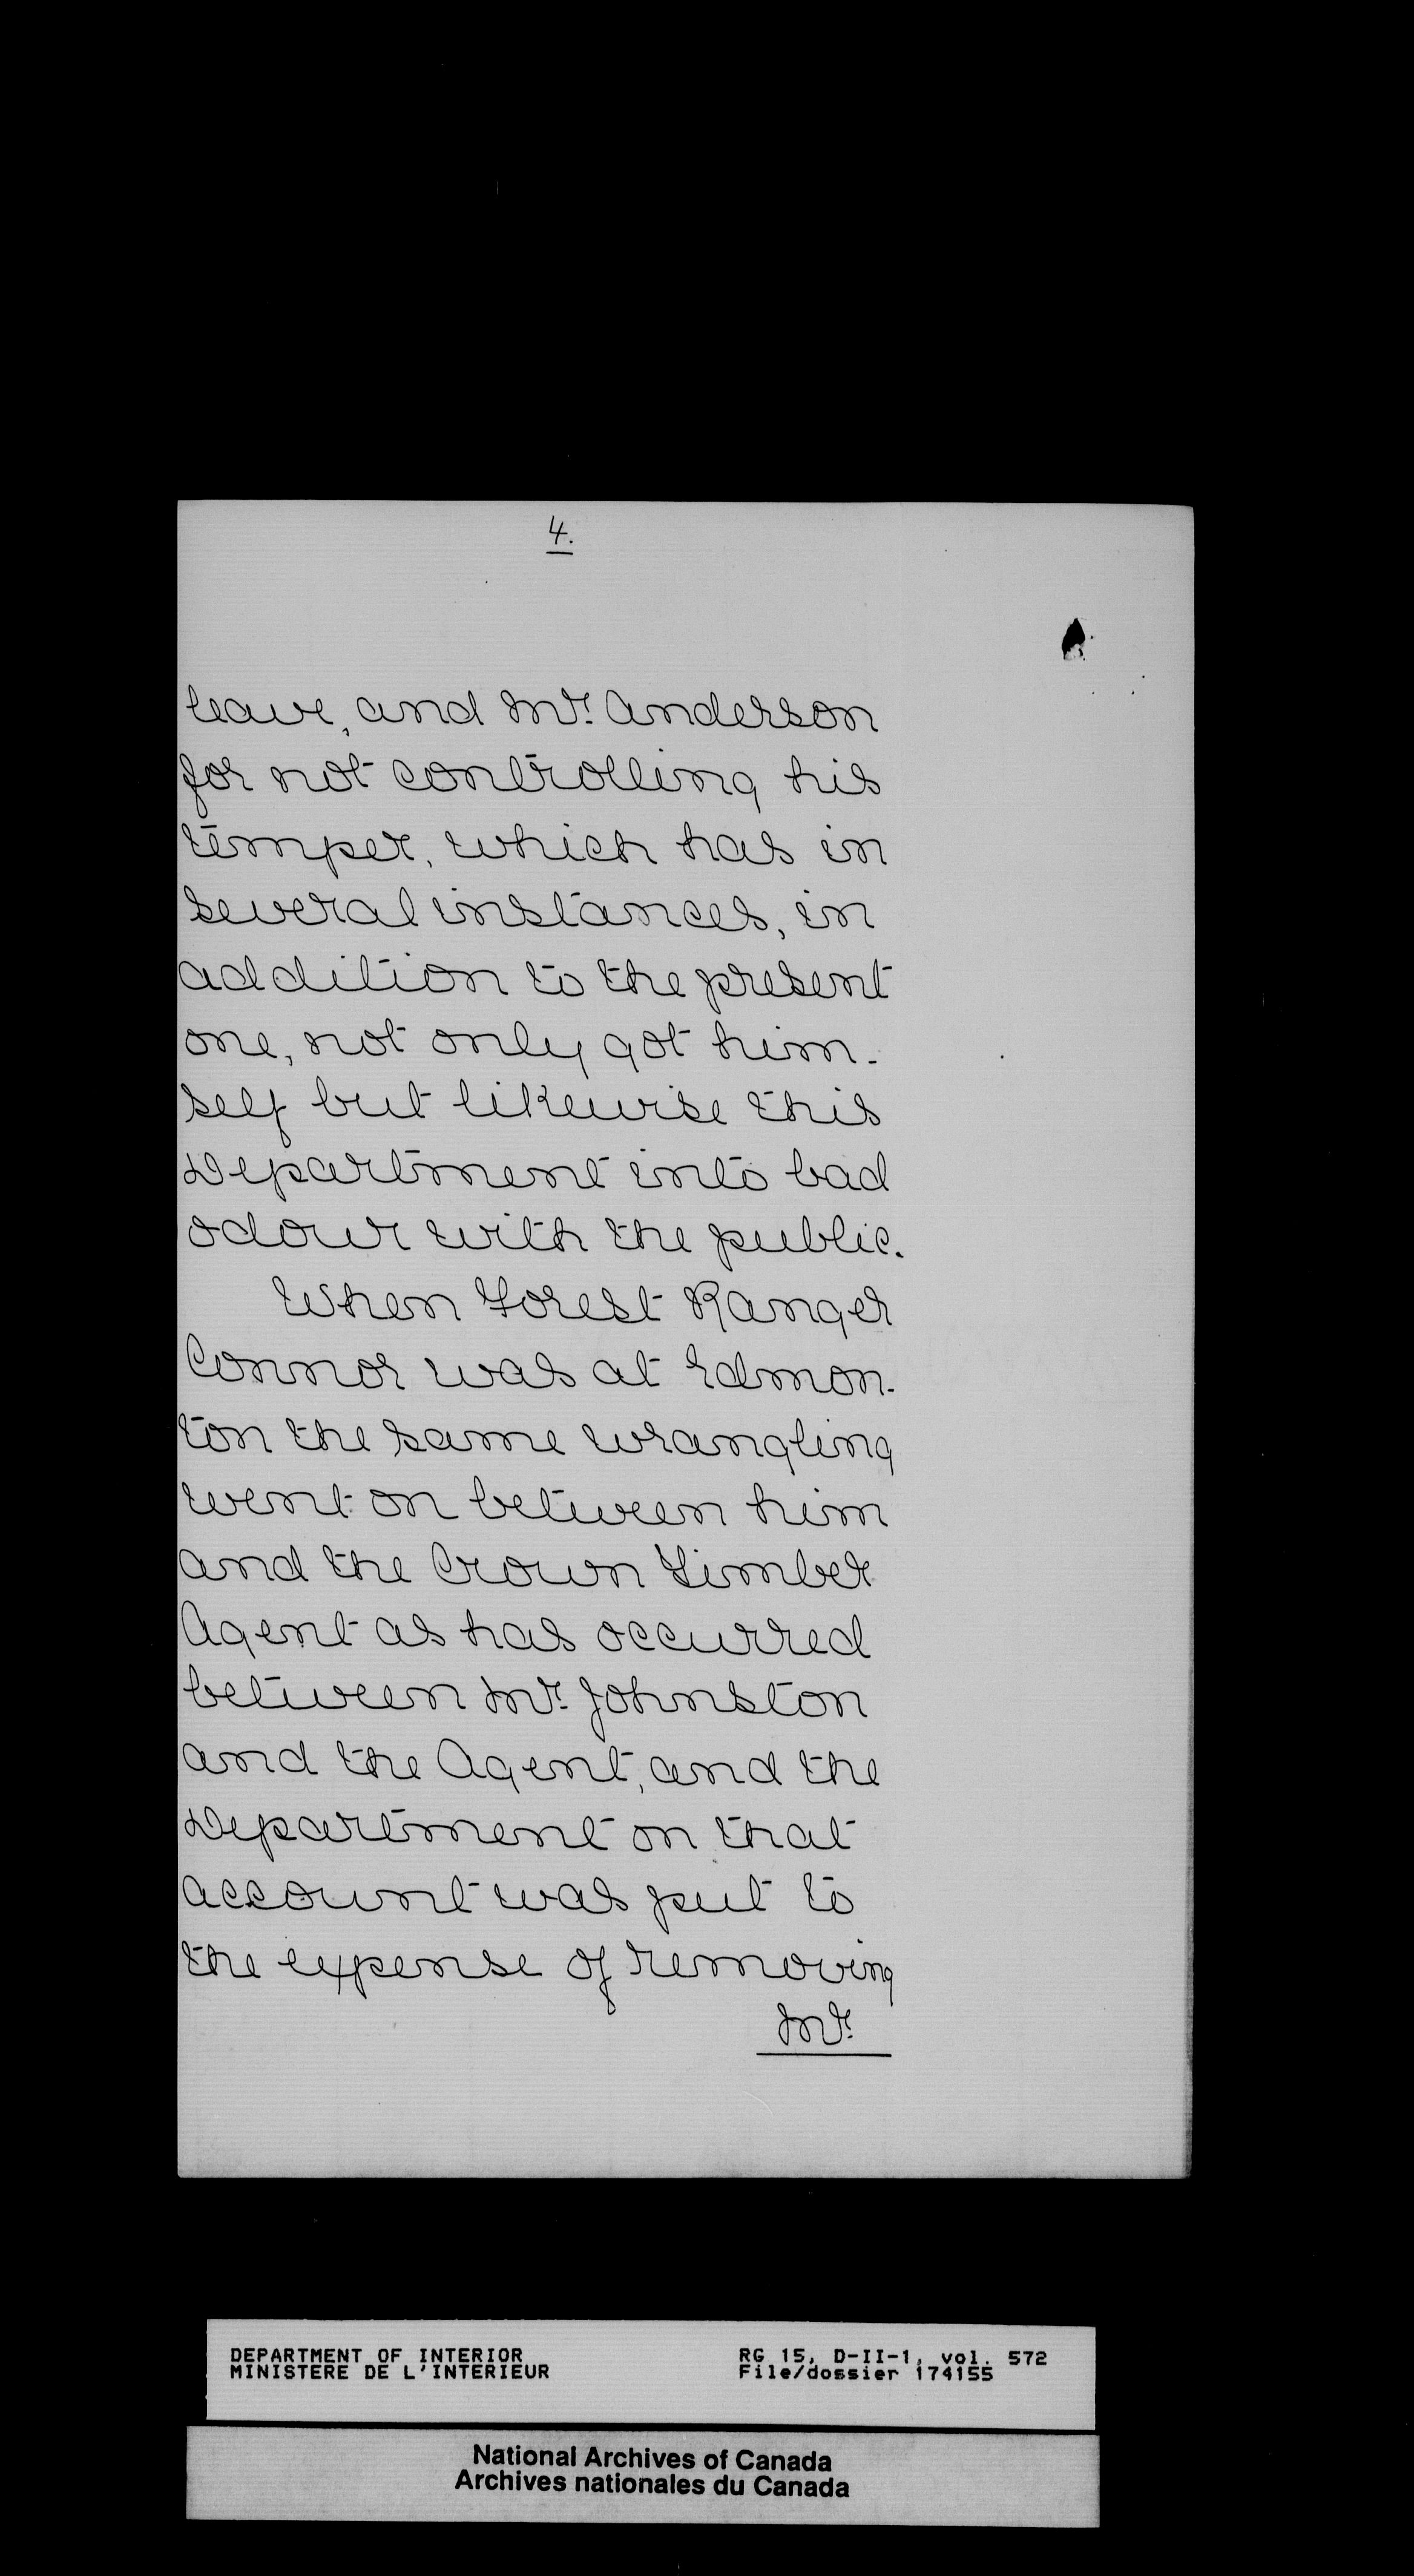 4.
leave, and Mr. Anderson
for not controlling his
temper, which has in
several instances, in
addition to the present
one, not only got him-
self but likewise this
Department into bad
odour with the public.
When Forest Ranger
Connor was at Edmon-
ton the same wrangling
went on between him
and the Crown Timber
Agent as has occurred
between Mr. Johnston
and the Agent, and the
Department on that
account was put to
the expense of removing
Mr.
DEPARTMENT OF INTERIOR RG 15, D-II-1, vol. 572
MINISTERE DE L'INTERIEUR File/dossier 174155
National Archives of Canada
Archives nationales du Canada